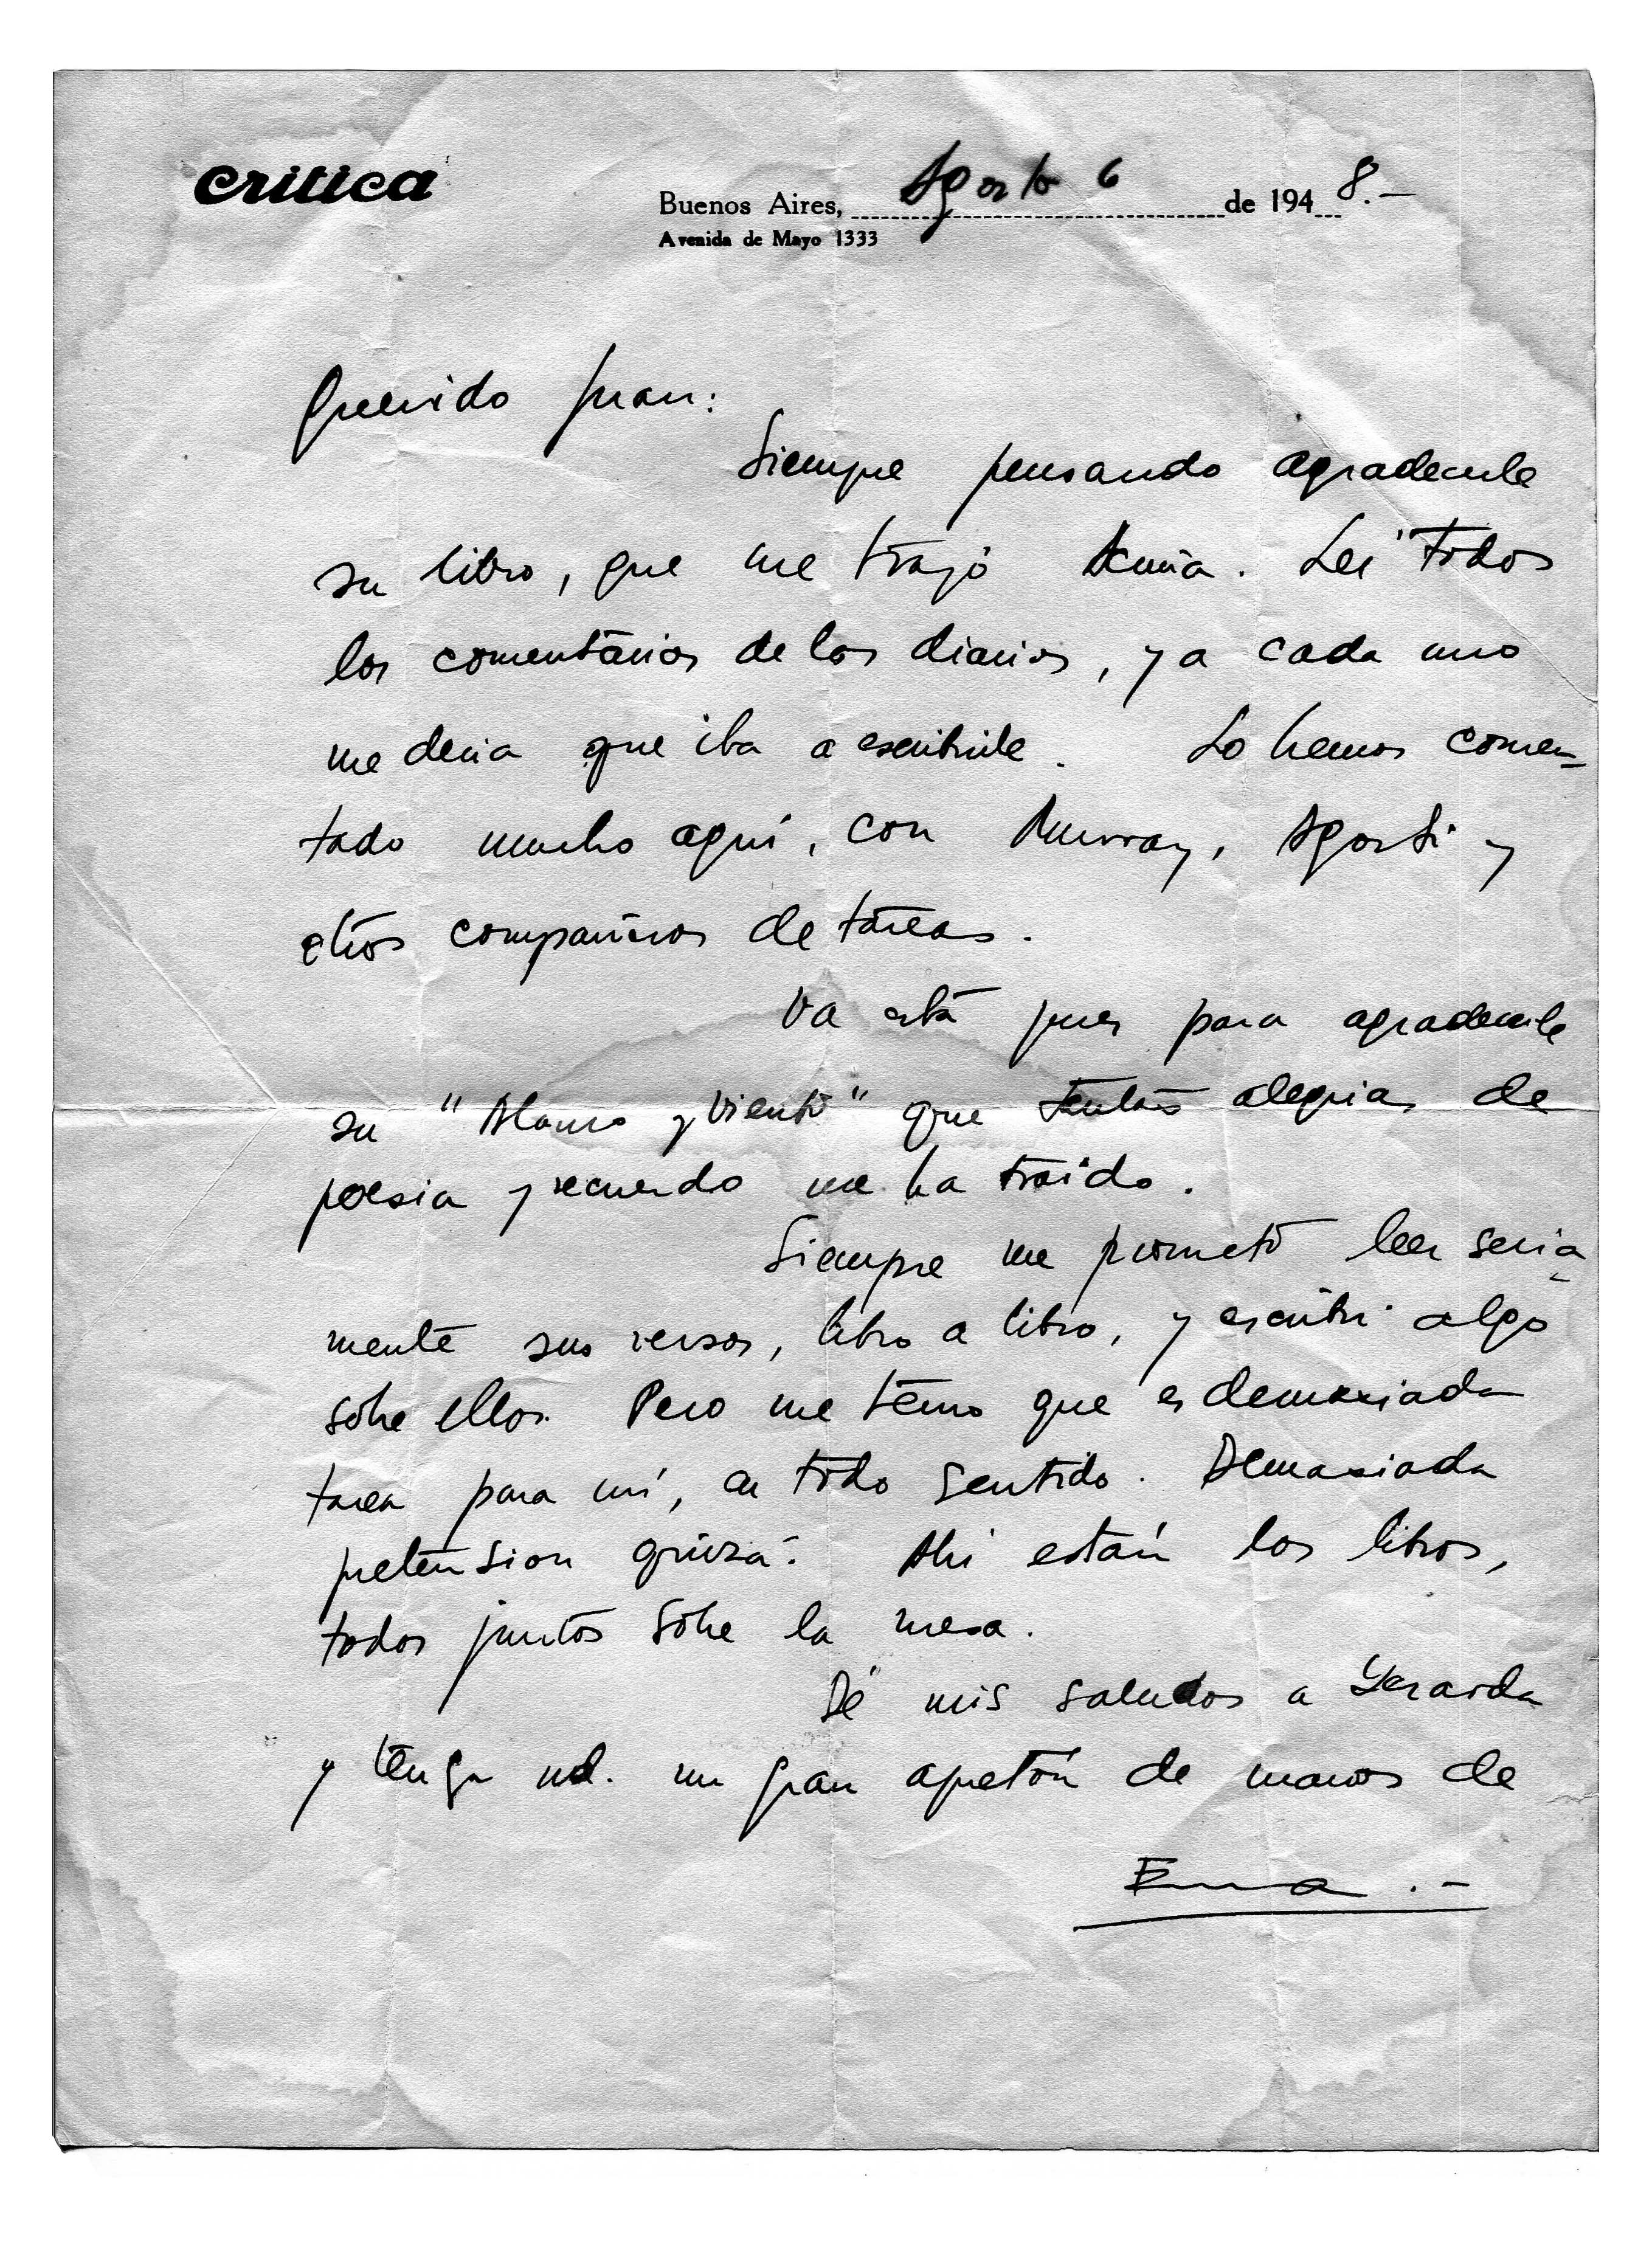 critica
Buenos Aires, Agosto 6 de 1948.-
Avenida de Mayo 1333
Querido Juan:
Siempre pensando agradecerle
su libro, que me trajo Acuña. Leí todos
los comentarios de los diarios, y a cada uno
me decia que iba a escribirle. Lo hemos comen-
tado mucho aquí, con Murray, Agosti y
otros compañeros de tareas.
Va esta pues para agradecerle
su "Alamo y Viento" que tantas alegrias de
poesia y recuerdo me ha traído.
Siempre me prometo leer seria-
mente sus versos, libro a libro, y escribir algo
sobre ellos. Pero me temo que es demasiada
tarea para mí, en todo sentido. Demasiada
pretension quizá. Ahi están los libros,
todos juntos sobre la mesa.
Dé mis saludos a Gerarda
y tenga ud. un gran apretón de manos de